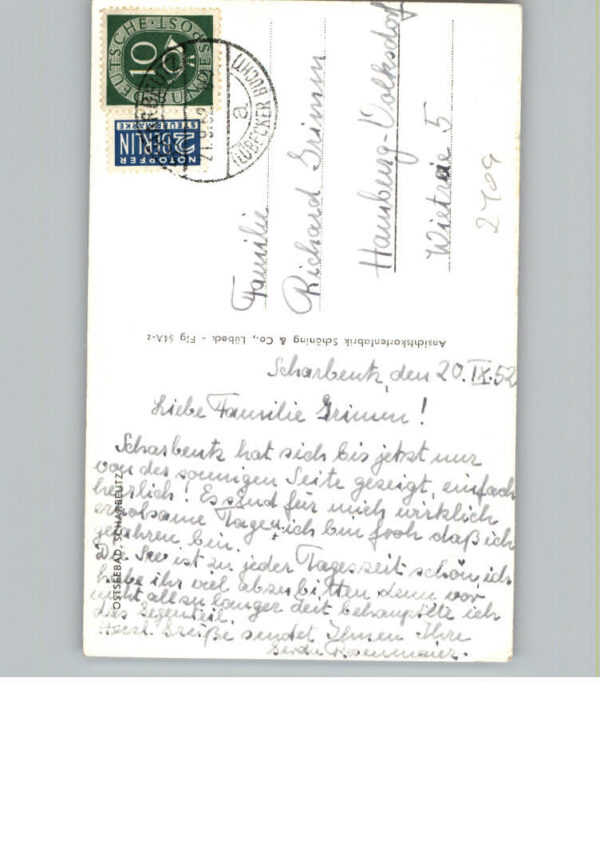 DEUTSCHE BUNDESPOST
10
NOTOPFER
2 BERLIN
STEUERMARKE
SCHARBEUTZ
LÜBECKER BUCHT
a
Familie
Richard Grimm
Hamburg-Volksdorf
Wietreie 5
2409
Ansichtskartenfabrik Schöning & Co., Lübeck - Flg 54A-z
OSTSEEBAD SCHARBEUTZ
Scharbeutz, den 20.IX.52
Liebe Familie Grimm!
Scharbeutz hat sich bis jetzt nur
von der sonnigen Seite gezeigt, einfach
herrlich! Es sind für mich wirklich
erholsame Tage u. ich bin froh daß ich
gefahren bin.
Die See ist zu jeder Tageszeit schön, ich
habe ihr viel abzubitten denn vor
nicht allzu langer Zeit behauptete ich
das Gegenteil.
Herzl. Grüße sendet Ihnen Ihre
Gerda Rosenmaier.